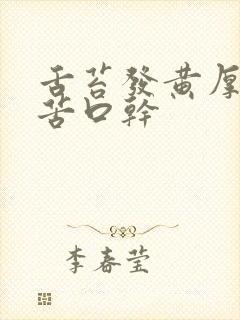 舌苔發黃厚
苦口幹
李春莹